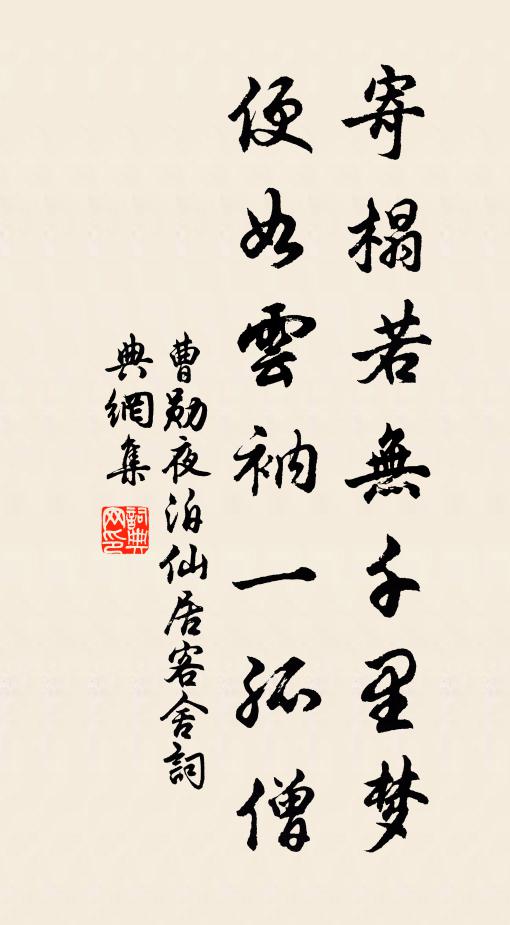 寄榻若無千里梦
便如雲衲一孤僧
曹勛夜泊仙居客舍詞
典網集
詞典
网印